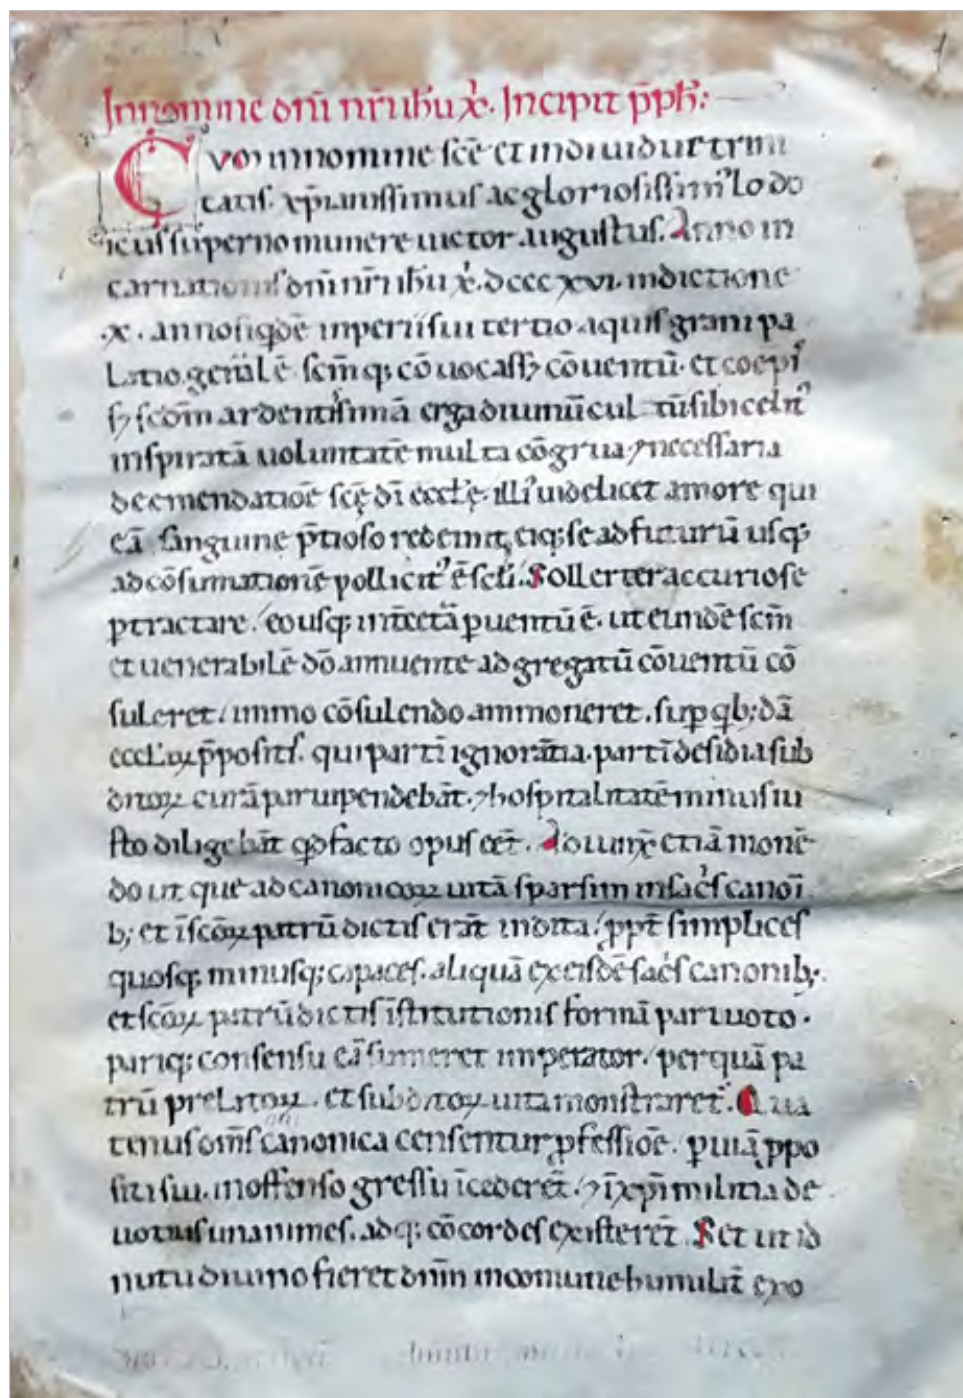 In nomine dn̄i nr̄i ih̄u xp̄i. Incipit p̄ph̄:
CVm in nomine sc̄e et indiuidue trini
tatis. xp̄ianissimus ac gloriosissim' lodo
icus superno munere uictor augustus. Anno in
carnationis dn̄i nr̄i ih̄u xp̄i. dccc xvi. indictione
.x. anno siq̄dē inperii sui tertio aquis grani pa
latio. gen̄alē scm̄q; cōuocass; cōuentū. et coepi
s; scd̄m ardentissimā erga diuinū cultū sibi celit'
inspiratā uoluntatē multa cōgrua ⁊ necessaria
de emendatiōe sc̄ę dī eccl̄ę. illi' uidelicet amore qui
eā sanguine p̄tioso redemit, eiq; se ad futurū usq;
ad cōsumationē pollicit' ē sc̄li. Sollerter ac curiose
ptractare. eousq; int̄ cetā puentū ē. ut eundē scm̄
et uenerabilē dō annuente adgregatū cōuentū cō
suleret. immo cōsulendo ammoneret. sup qb; dā
eccl̄aꝝ p̄positis. qui partī ignorātia. partī desidia sub
ditoꝝ curā paruipendebāt. ⁊ hospitalitatē minus iu
sto diligebāt qd̄ facto opus eēt. Adiunx̄ etiā monē
do ut que ad canonicoꝝ uitā sparsim in sac̄s canoī
b; et ī sc̄oꝝ patrū dictis erāt indita. ppt̄ simplices
quosq; minusq; capaces. aliquā ex eisdē sac̄s canonib;.
et sc̄oꝝ patrū dictis īstitutionis formā pari uoto.
pariq; consensu eā sumeret imperator. per quā pa
trū prelatoꝝ. et subditoꝝ uita monstraret'. Qua
tenus om̄s canonica censentur pfessiōe. p uiā ppo
siti sui. inoffenso gressu īcederēt. ⁊ ī xp̄i militia de
uotius unanimes. adq; cōcordes existerēt. Set ut id
nutu diuino fieret dn̄m in comune humilit̄ exo